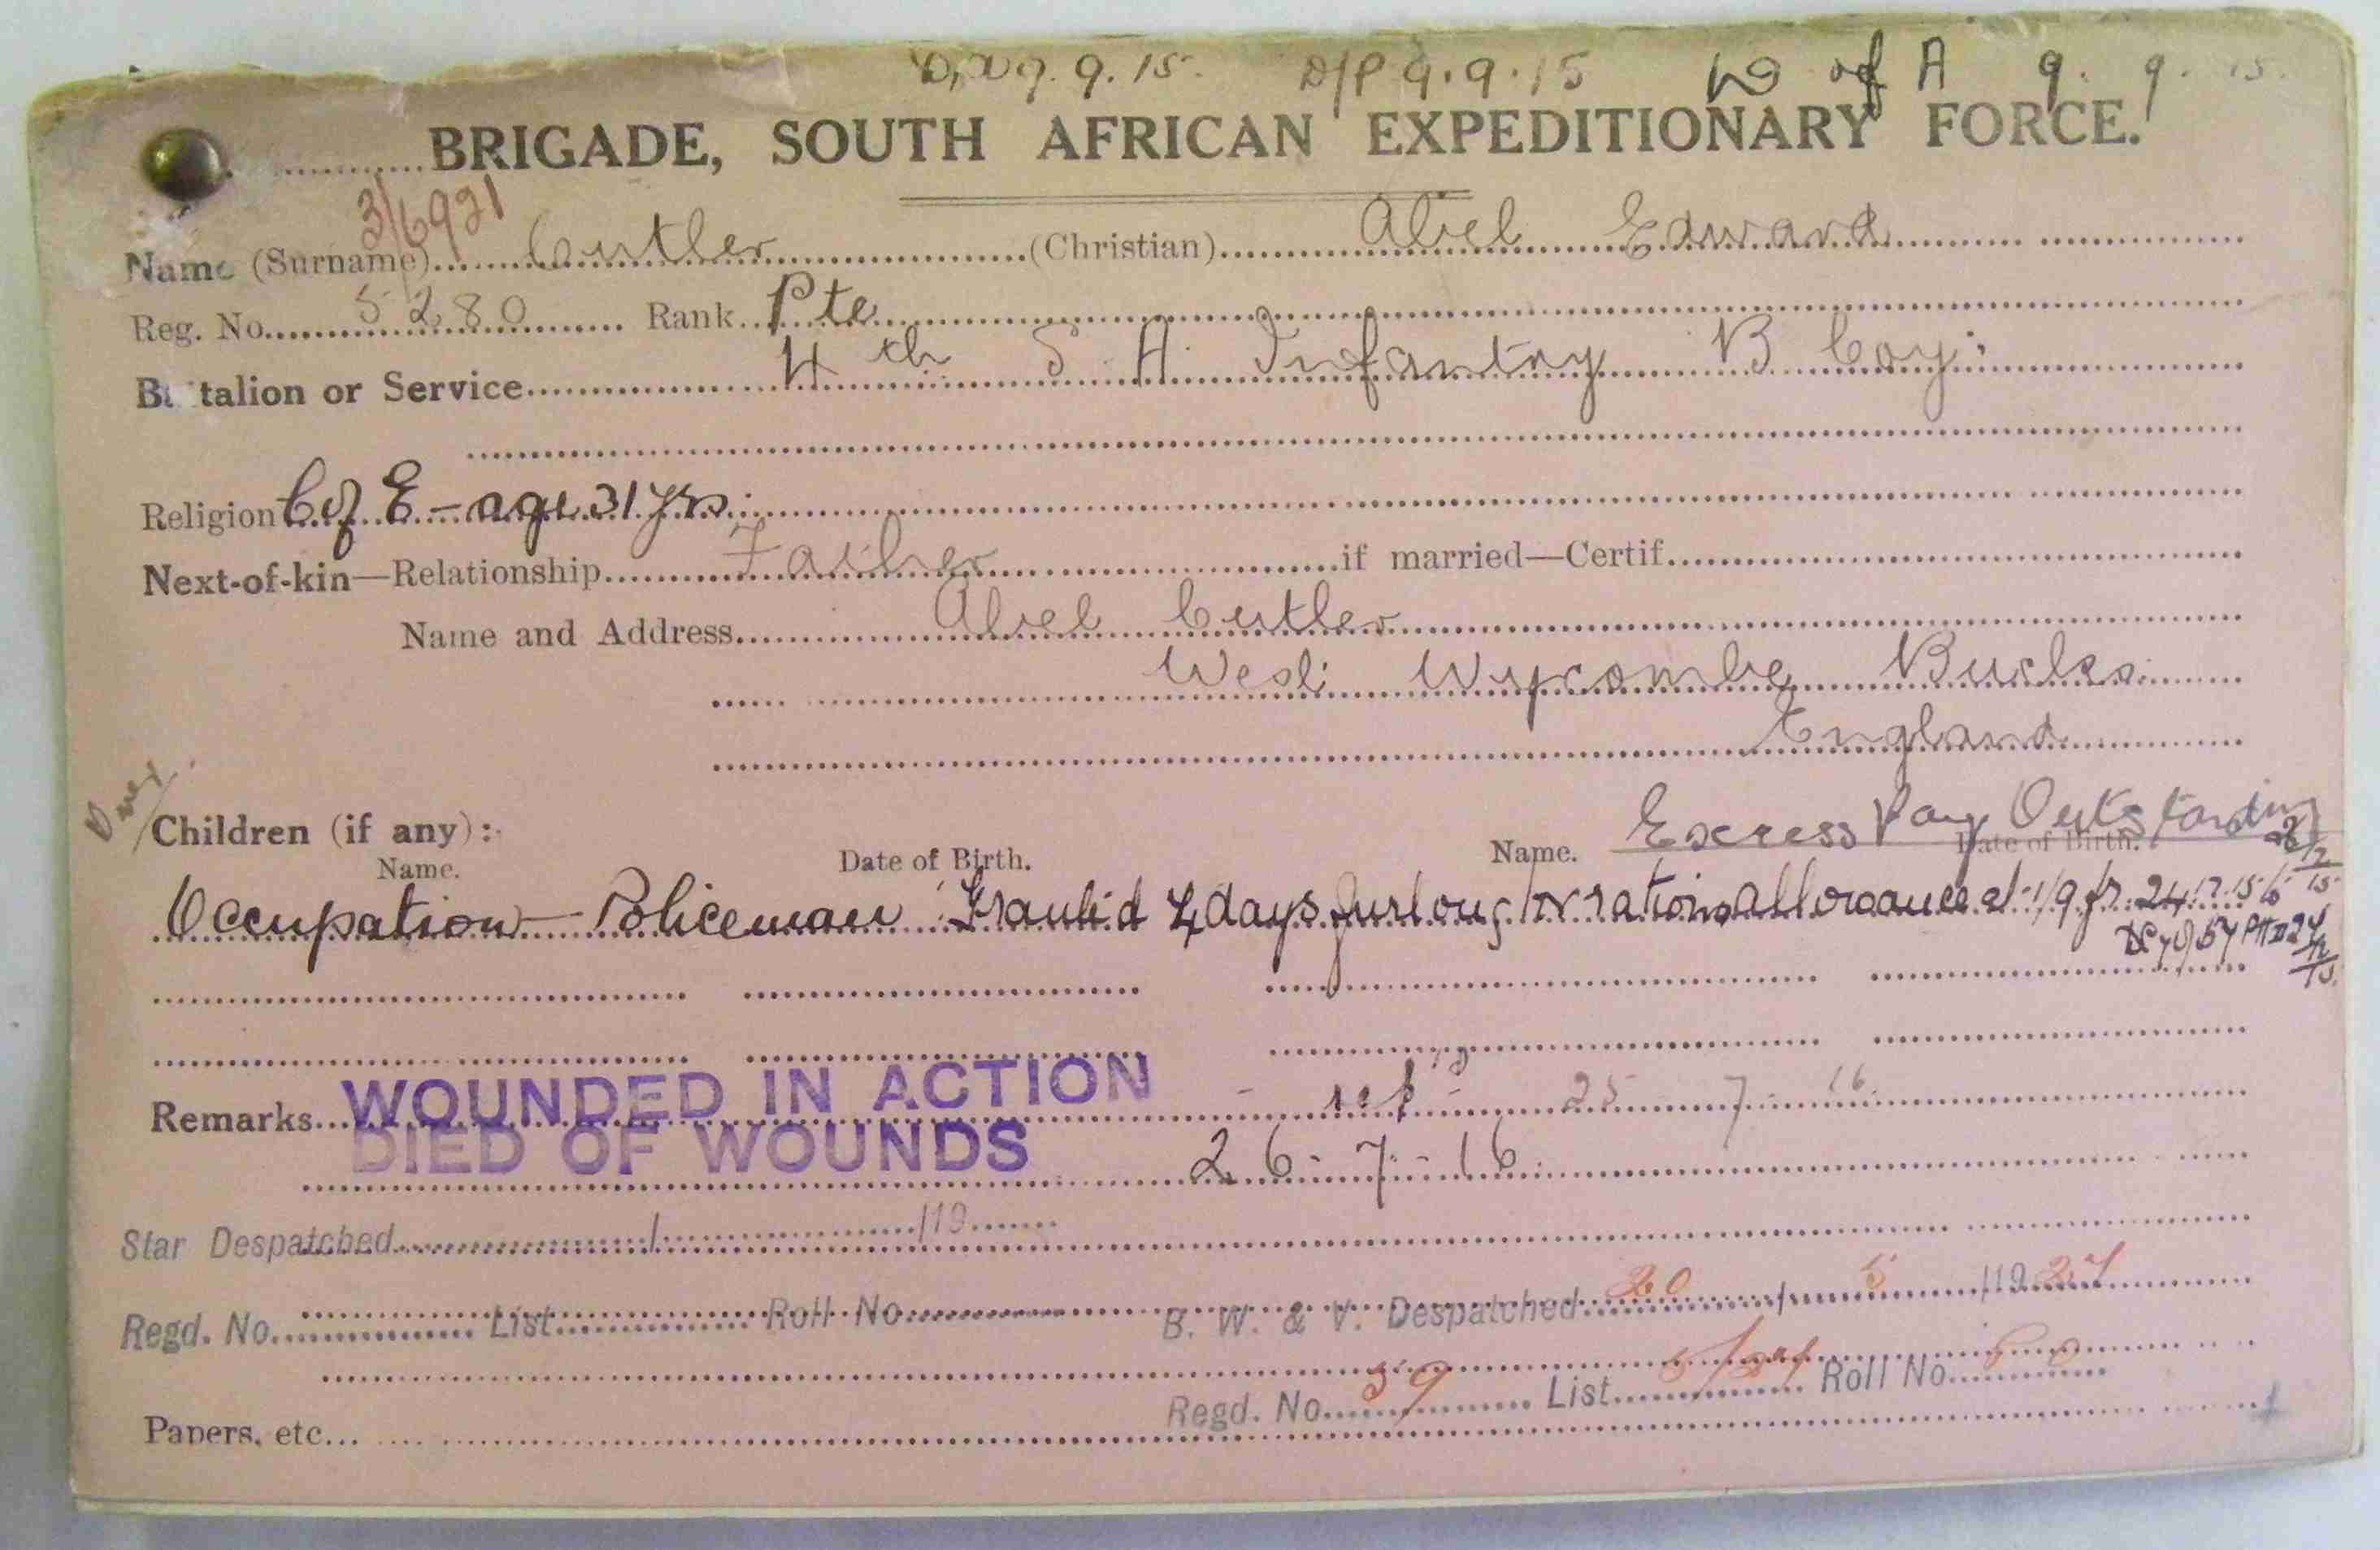 9.9.15. D/P 9.9.15 of A 9.9.15.
BRIGADE, SOUTH AFRICAN EXPEDITIONARY FORCE.
3/6921
Name (Surname) Cutler (Christian) Abiel Edward
Reg. No. 5280 Rank Pte
Battalion or Service 4th S A Infantry B Coy
Religion C of E - age 31 yrs
Next-of-kin—Relationship Father if married—Certif.
Name and Address Abiel Cutler
West Wycombe Bucks
England
Children (if any):- Excess Pay Outstanding
Name. Date of Birth. Name. Date of Birth.
Occupation - Policeman Granted 4 days furlough rations allowance at 1/9 fr. 24.12.15
WOUNDED IN ACTION
Remarks 25 7 16
DIED OF WOUNDS 26-7-16
Star Despatched / /19
Regd. No. List Roll No. B. W. & V. Despatched 20 / 5 /19 24
Regd. No. 59 List Roll No.
Papers, etc.